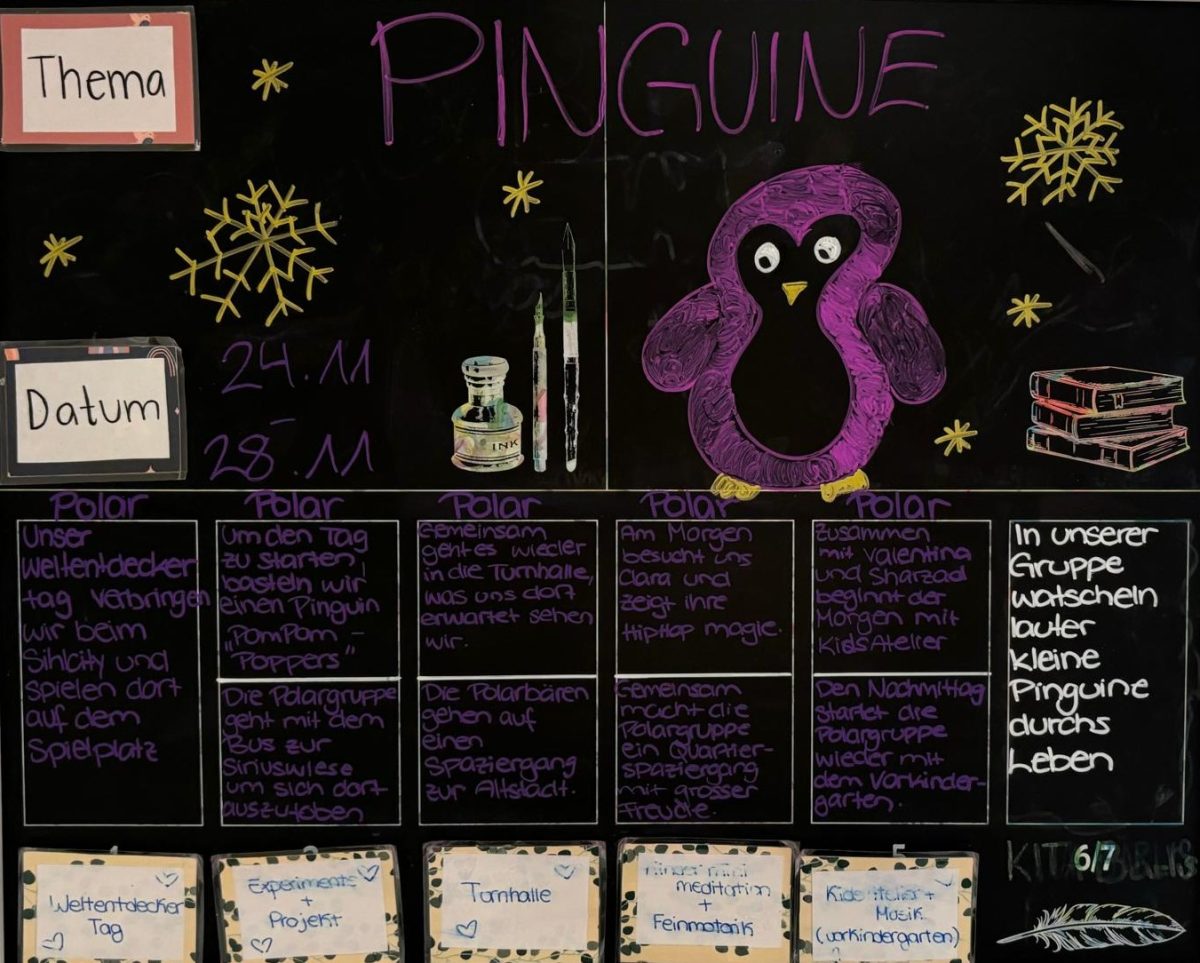 Thema
PINGUINE
INK
Datum
24.11
-
28.11
Polar
Unser
Weltentdecker
tag verbringen
wir beim
Sihlcity und
spielen dort
auf dem
Spielplatz
Polar
Um den Tag
zu starten,
basteln wir
einen Pinguin
"PomPom -
Poppers"
Die Polargruppe
geht mit dem
Bus zur
Siriuswiese
um sich dort
auszutoben
Polar
Gemeinsam
geht es wieder
in die Turnhalle,
was uns dort
erwartet sehen
wir.
Die Polarbären
gehen auf
einen
Spaziergang
zur Altstadt.
Polar
Am Morgen
besucht uns
Clara und
zeigt ihre
HipHop magie.
Gemeinsam
macht die
Polargruppe
ein Quartier-
spaziergang
mit grosser
Freude.
Polar
Zusammen
mit Valentina
und Sharzad
beginnt der
Morgen mit
KidsAtelier
Den Nachmittag
startet die
Polargruppe
wieder mit
dem Vorkinder-
garten.
In unserer
Gruppe
watscheln
lauter
kleine
Pinguine
durchs
Leben
Weltentdecker
Tag
Experimente
+
Projekt
Turnhalle
meditation
+
Feinmotorik
5
Kids Atelier +
Musik
(vorkindergarten)
KITA
6/7